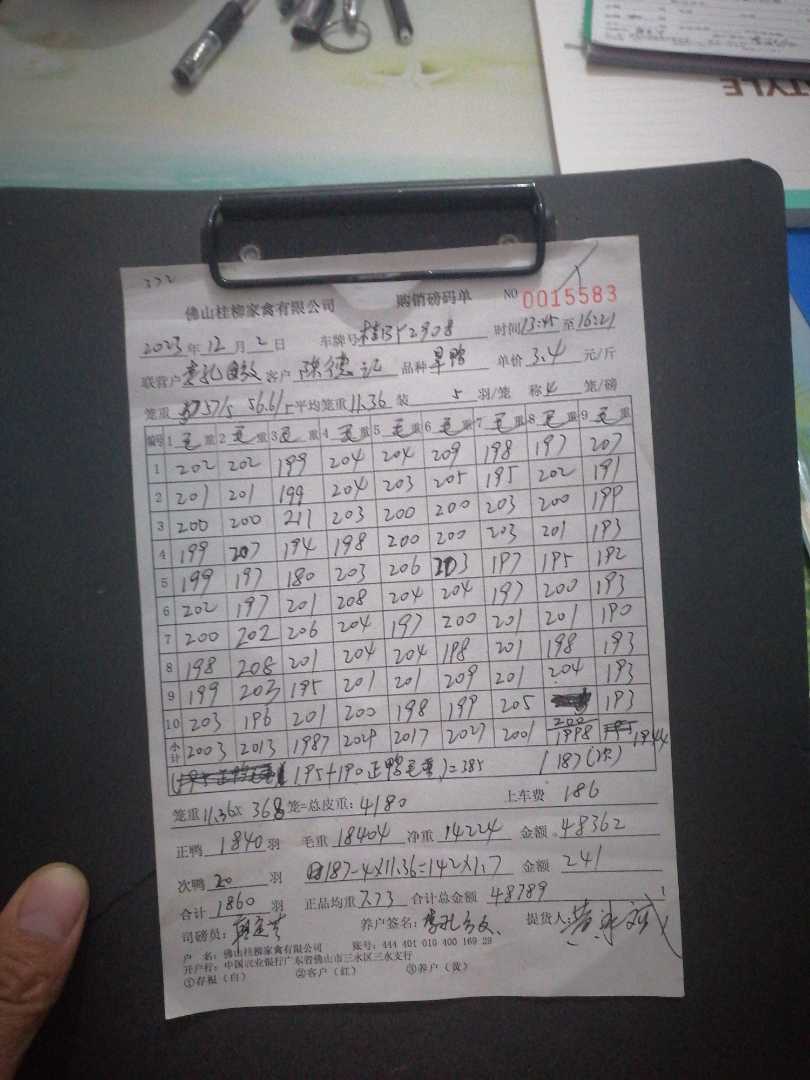 STYLE
332
佛山桂柳家禽有限公司 购销磅码单 NO 0015583
2023年12月2日 车牌号桂BY2908 时间13:45至16:21
联营户 客户 陈德记 品种 旱鸭 单价3.4元/斤
笼重 57/5 56.6/5 平均笼重11.36 装 5 羽/笼 称 4 笼/磅
编号 1毛重 2毛重 3毛重 4毛重 5毛重 6毛重 7毛重 8毛重 9毛重
1 202 202 199 204 204 209 198 197 207
2 201 201 199 204 203 205 195 202 191
3 200 200 211 203 200 200 203 200 199
4 199 207 194 198 200 200 203 201 193
5 199 197 180 203 206 203 197 195 192
6 202 197 201 208 204 204 197 200 193
7 200 202 206 204 197 200 201 201 190
8 198 208 201 204 204 198 201 198 193
9 199 203 195 201 201 209 201 204 193
10 203 196 201 200 198 199 205 200 193
小计 2003 2013 1987 2029 2017 2027 2001 1998 1944
(195+190正鸭毛重)=385 187(次)
笼重11.36x368笼=总皮重:4180 上车费 186
正鸭1840羽 毛重18404 净重14224 金额48362
次鸭20羽 187-4X11.36=142X1.7 金额241
合计1860羽 正品均重7.73 合计总金额48789
司磅员: 养户签名: 提货人:
户 名:佛山桂柳家禽有限公司 账号:444 401 010 400 169 29
开户行:中国农业银行广东省佛山市三水区三水支行
①存根(白) ②客户(红) ③养户(黄)